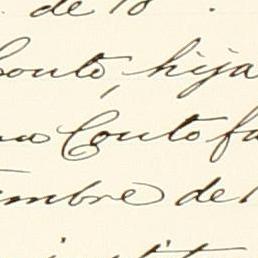 de 18
Couto, hija
Couto fa
mbre de 1